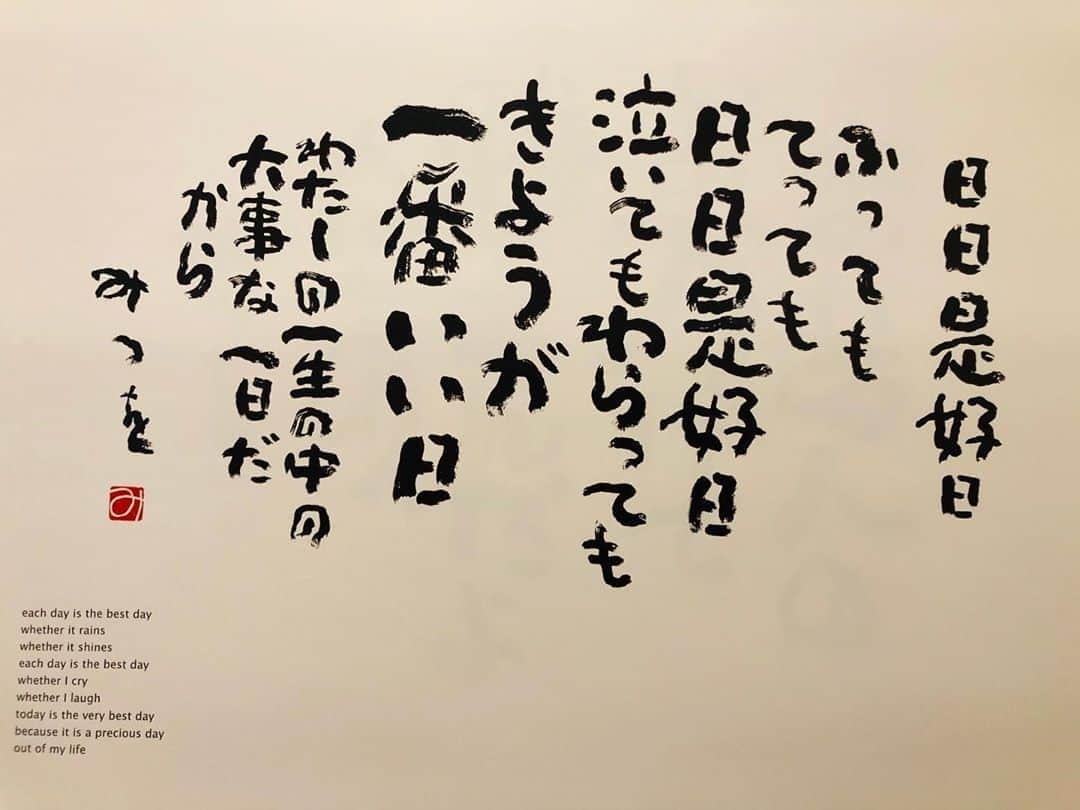 日日是好日
ふっても
てっても
日日是好日
泣いてもわらっても
きようが
一番いい日
わたしの一生の中の
大事な一日だ
から
みつを
み
each day is the best day
whether it rains
whether it shines
each day is the best day
whether I cry
whether I laugh
today is the very best day
because it is a precious day
out of my life